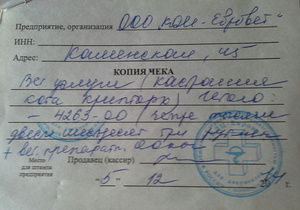 Предприятие, организация ООО Кон-Евровет
ИНН:
Адрес: Каменская, 45
КОПИЯ ЧЕКА
Вет. услуги (Кастрация
кота крипторх)
- 4263-00 (четыре тысячи
двести шестьдесят три рубля
+ вет. препараты.
Место для штампа предприятия
Продавец (кассир)
-5- 12